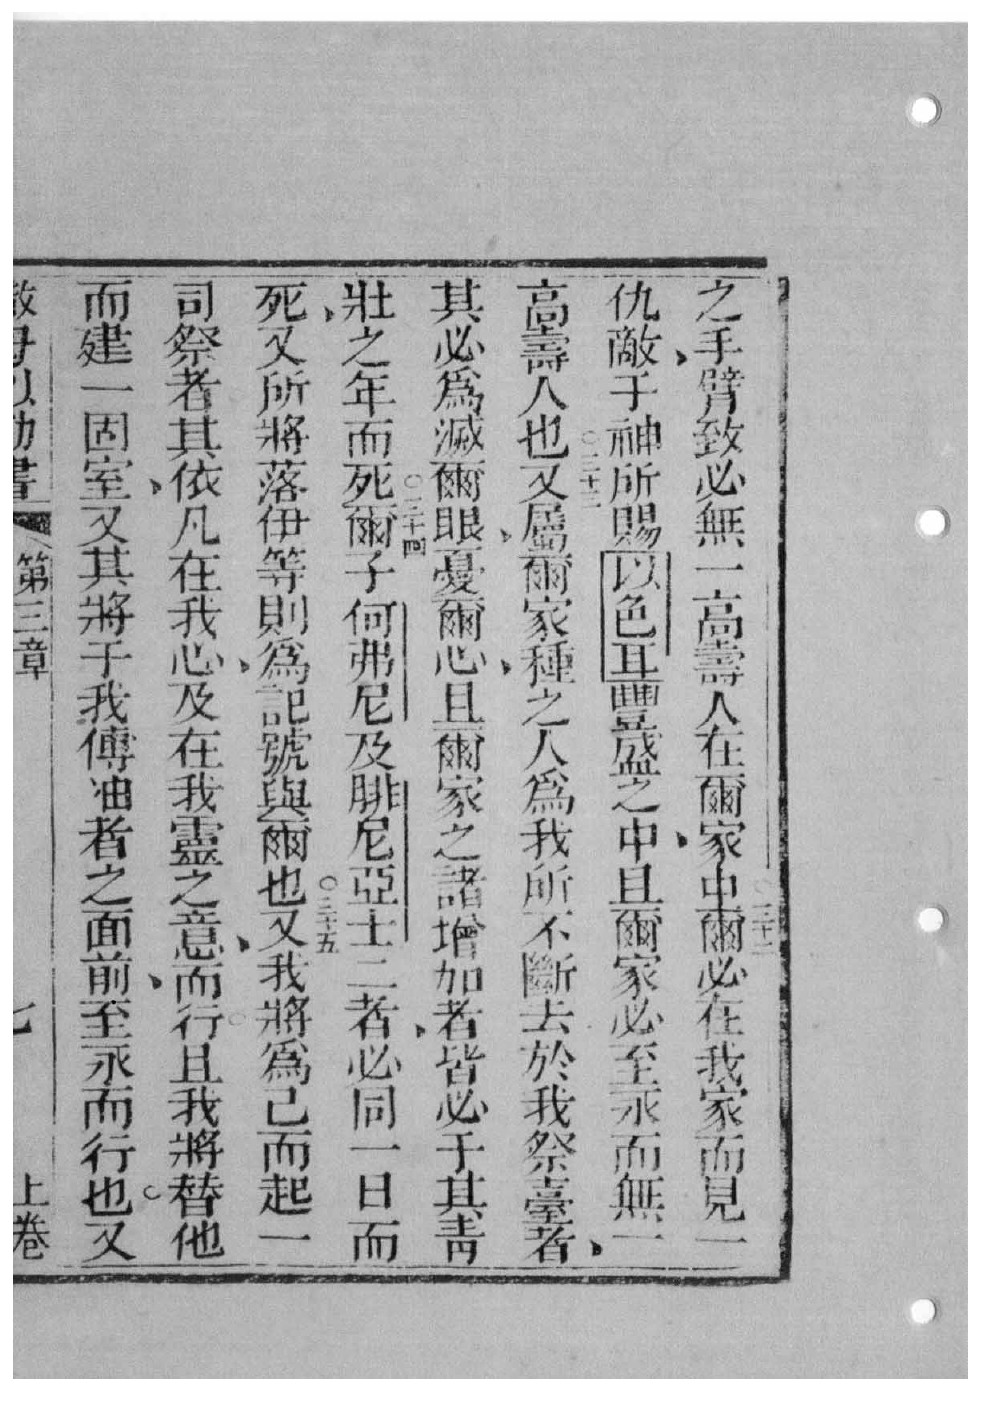 之手臂致必無一高壽人在爾家中○三十二爾必在我家而見一
仇敵于神所賜以色耳豐盛之中且爾家必至永而無一
高壽人也○三十三又屬爾家種之人為我所不斷去於我祭臺者
其必為滅爾眼憂爾心且爾家之諸增加者皆必于其青
壯之年而死○三十四爾子何弗尼及腓尼亞士二者必同一日而
死又所將落伊等則為記號與爾也○三十五又我將為己而起一
司祭者其依凡在我心及在我靈之意而行且我將替他
而建一固室又其將于我傅油者之面前至永而行也又
第三章 七 上卷